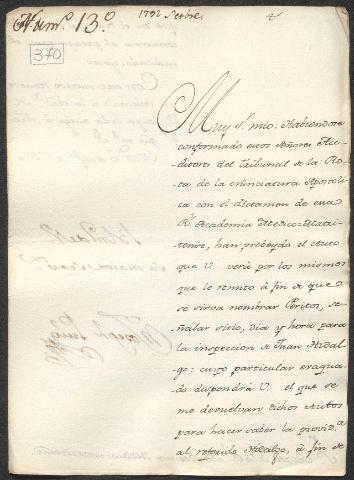 Num.º 13.º
1792 Septbre.
370
Muy S.r mio: Habiendose
conformado estos Señores Au-
ditores del Tribunal de la Ro-
ta de la Nunciatura Apostoli-
ca con el dictamen de esa
R.l Academia Medico-Matri-
tense, han probeydo el Auto
que V. verá por los mismos
que le remito à fin de que
se sirva nombrar Peritos, se-
ñalar sitio, dia y hora para
la inspeccion de Juan Hidal-
go: cuyo particular evaqua-
do dispondrá V. el que se
me devuelvan dichos Autos
para hacer saber la provid.a
al referido Hidalgo, à fin de